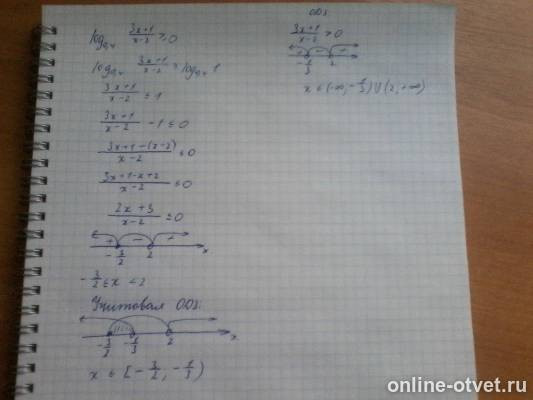 log₀,₄ (3x+1)/(x-2) ≥ 0
log₀,₄ (3x+1)/(x-2) ≥ log₀,₄ 1
(3x+1)/(x-2) ≤ 1
(3x+1)/(x-2) - 1 ≤ 0
(3x+1-(x-2))/(x-2) ≤ 0
(3x+1-x+2)/(x-2) ≤ 0
(2x+3)/(x-2) ≤ 0
+ - +
-3/2 2 x
-3/2 ≤ x < 2
Учитывая ОДЗ:
-3/2 -1/3 2 x
x ∈ [-3/2; -1/3)
ОДЗ:
(3x+1)/(x-2) > 0
+ - +
-1/3 2
x ∈ (-∞; -1/3) U (2; +∞)
online-otvet.ru